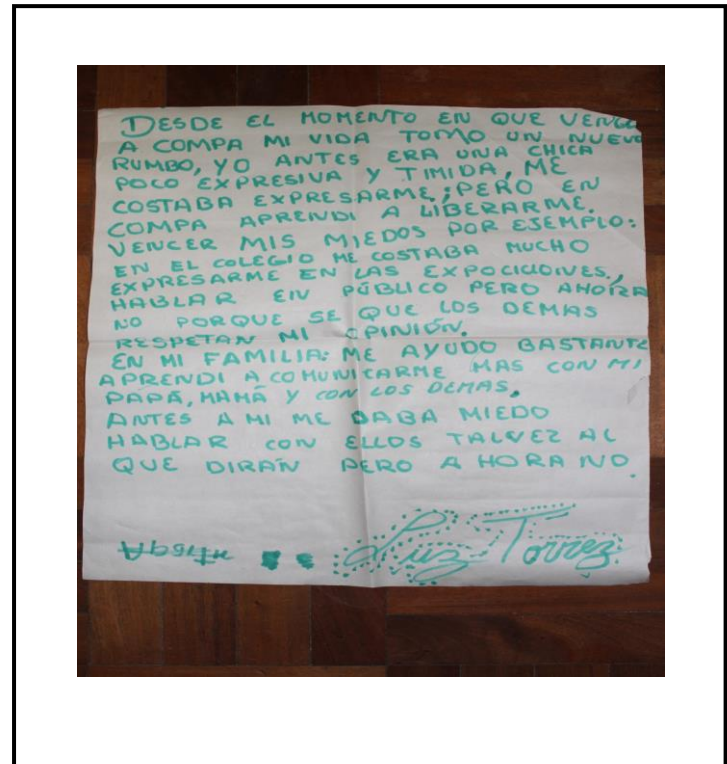 DESDE EL MOMENTO EN QUE VENGO
A COMPA MI VIDA TOMO UN NUEVO
RUMBO, YO ANTES ERA UNA CHICA
POCO EXPRESIVA Y TIMIDA, ME
COSTABA EXPRESARME; PERO EN
COMPA APRENDI A LIBERARME.
VENCER MIS MIEDOS POR ESEMPLO:
EN EL COLEGIO ME COSTABA MUCHO
EXPRESARME EN LAS EXPOCICIONES,
HABLAR EN PÚBLICO PERO AHORA
NO PORQUE SE QUE LOS DEMAS
RESPETAN MI OPINIÓN.
EN MI FAMILIA: ME AYUDO BASTANTE
APRENDI A COMUNICARME MAS CON MI
PAPÁ, MAMÁ Y CON LOS DEMAS.
ANTES A MI ME DABA MIEDO
HABLAR CON ELLOS TALVEZ AL
QUE DIRÁN PERO AHORA NO.
Luz Torrez